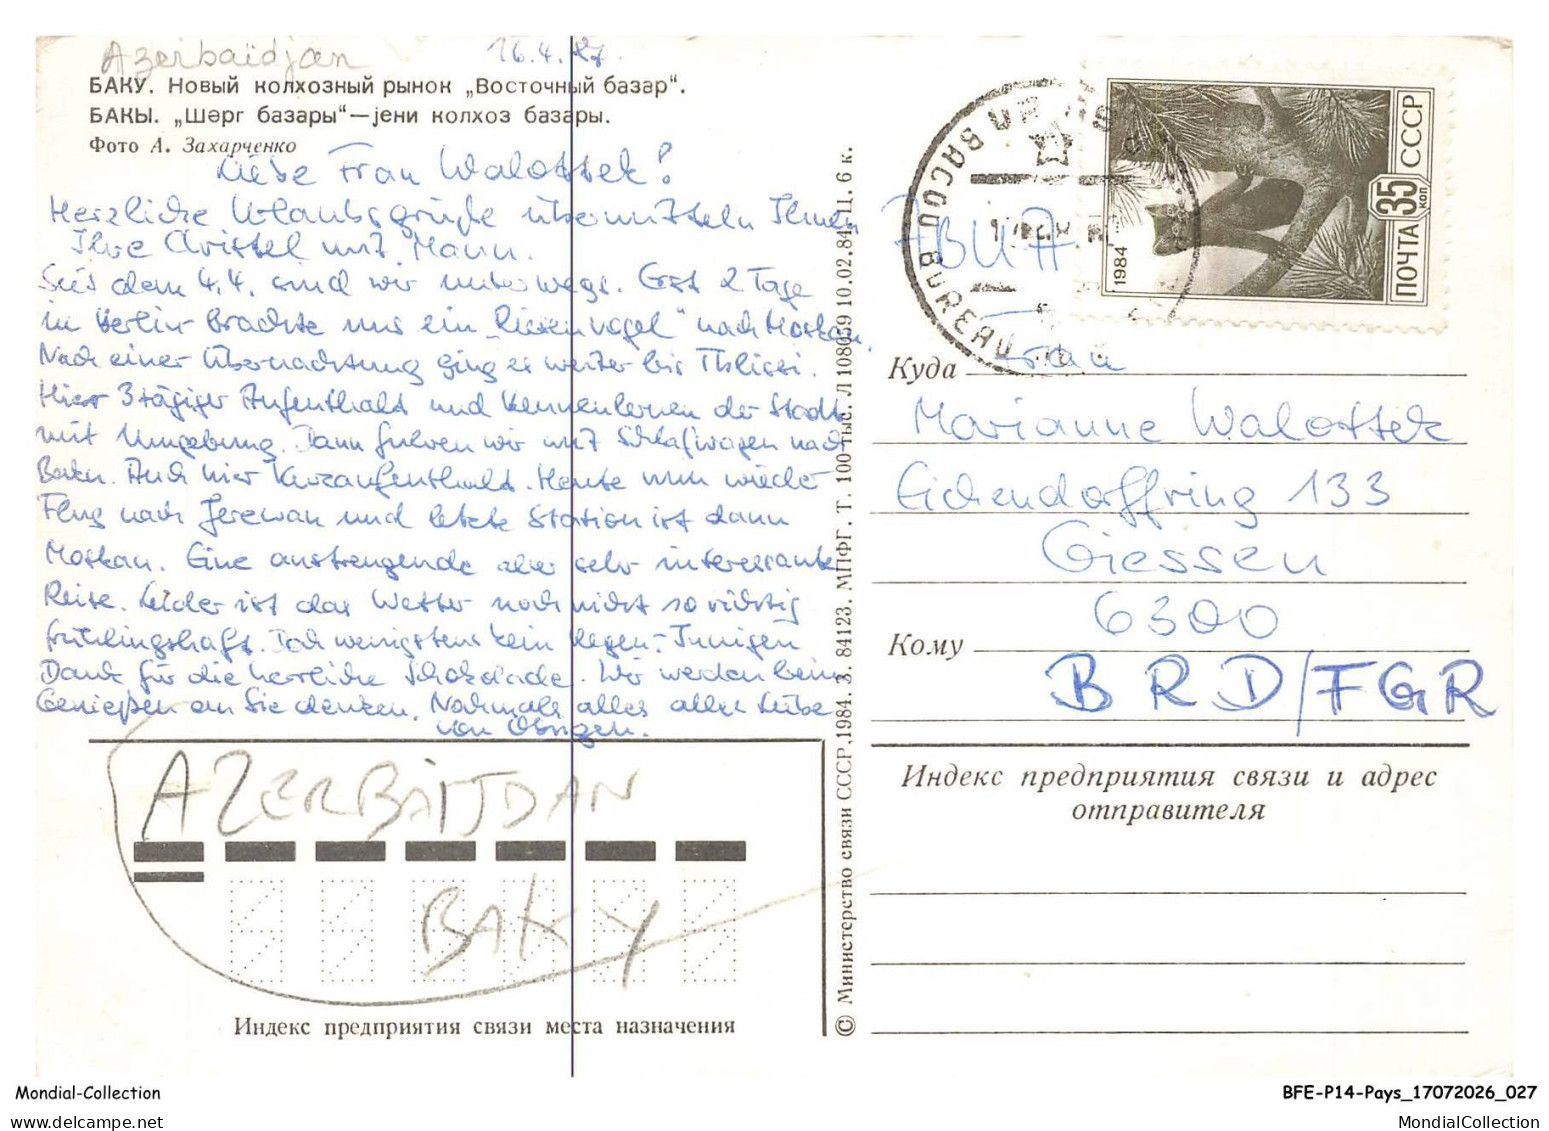 Azerbaïdjan
16.4.87.
БАКУ. Новый колхозный рынок „Восточный базар".
БАКЫ. „Шәрг базары"—јени колхоз базары.
Фото А. Захарченко
Liebe Frau Walossek!
Herzliche Urlaubsgrüße übermitteln Ihnen
Ihre Christel mit Mann.
Seit dem 4.4. sind wir unterwegs. Erst 2 Tage
in Berlin brachte uns ein „Riesenvogel" nach Moskau.
Nach einer Übernachtung ging es weiter bis Tbilissi.
Hier 3 tägiger Aufenthalt und Kennenlernen der Stadt
mit Umgebung. Dann fuhren wir mit Schlafwagen nach
Baku. Auch hier Kurzaufenthalt. Heute nun wieder
Flug nach Jerewan und letzte Station ist dann
Moskau. Eine anstrengende aber sehr interessante
Reise. Leider ist das Wetter noch nicht so richtig
frühlingshaft. Doch wenigstens kein Regen. - Innigen
Dank für die herrliche Schokolade. Wir werden beim
Genießen an Sie denken. Nochmals alles alles Liebe
von Obigen.
AZERBAIJDAN
BAKY
Индекс предприятия связи места назначения
© Министерство связи СССР, 1984. З. 84123. МПФГ. Т. 100 тыс. Л 108059 10.02.84 Ц. 6 к.
BACOU
BUREAU
1984
ПОЧТА 35 КОП СССР
Куда
Frau
Marianne Walossek
Eichendorffring 133
Giessen
6300
Кому
BRD/FGR
Индекс предприятия связи и адрес
отправителя
Mondial-Collection
BFE-P14-Pays_17072026_027
www.delcampe.net
MondialCollection